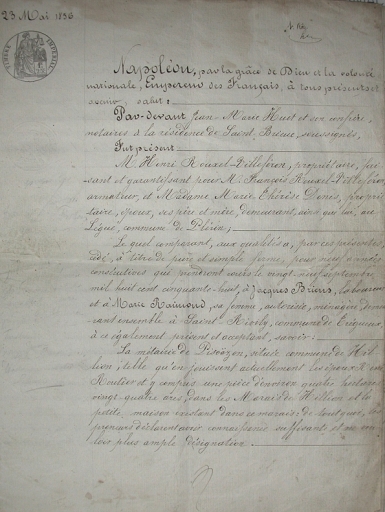 23 Mai 1856
TIMBRE IMPERIAL
Napoléon, par la grâce de Dieu et la volonté
nationale, Empereur des Français, à tous présents et
à venir, salut :
Par-devant Jean-Marie Huet et son confrère,
notaires à la résidence de Saint-Brieuc, soussignés,
Fut présent
M. Henri Rouxel-Villeféron, propriétaire, fai-
sant et garantissant pour M. François Rouxel-Villeféron,
armateur, et Madame Marie Thérèse Denis, proprié-
taire, époux, ses père et mère, demeurant, ainsi que lui, au
Légué, commune de Plérin ;
Le quel comparant, aux qualités a, par ces présentes,
cédé, à titre de pure et simple ferme, pour neuf années
consécutives qui prendront cours le vingt-neuf septembre
mil huit cent cinquante-huit, à Jacques Briens, laboureur
et à Marie Raimond, sa femme, autorisée, ménagère, demeu-
rant ensemble à Saint-, commune de
à ce également présents et acceptant, savoir :
La métairie de, située commune de Hil-
lion, telle qu'en jouissent actuellement les époux
Routier et y compris une pièce d'environ quatre hectares
vingt-quatre ares, dans les Marais de Hillion et la
petite maison existant dans ce marais ; de tout quoi, les
preneurs déclarent avoir connaissance suffisante et ne vou-
loir plus ample désignation.